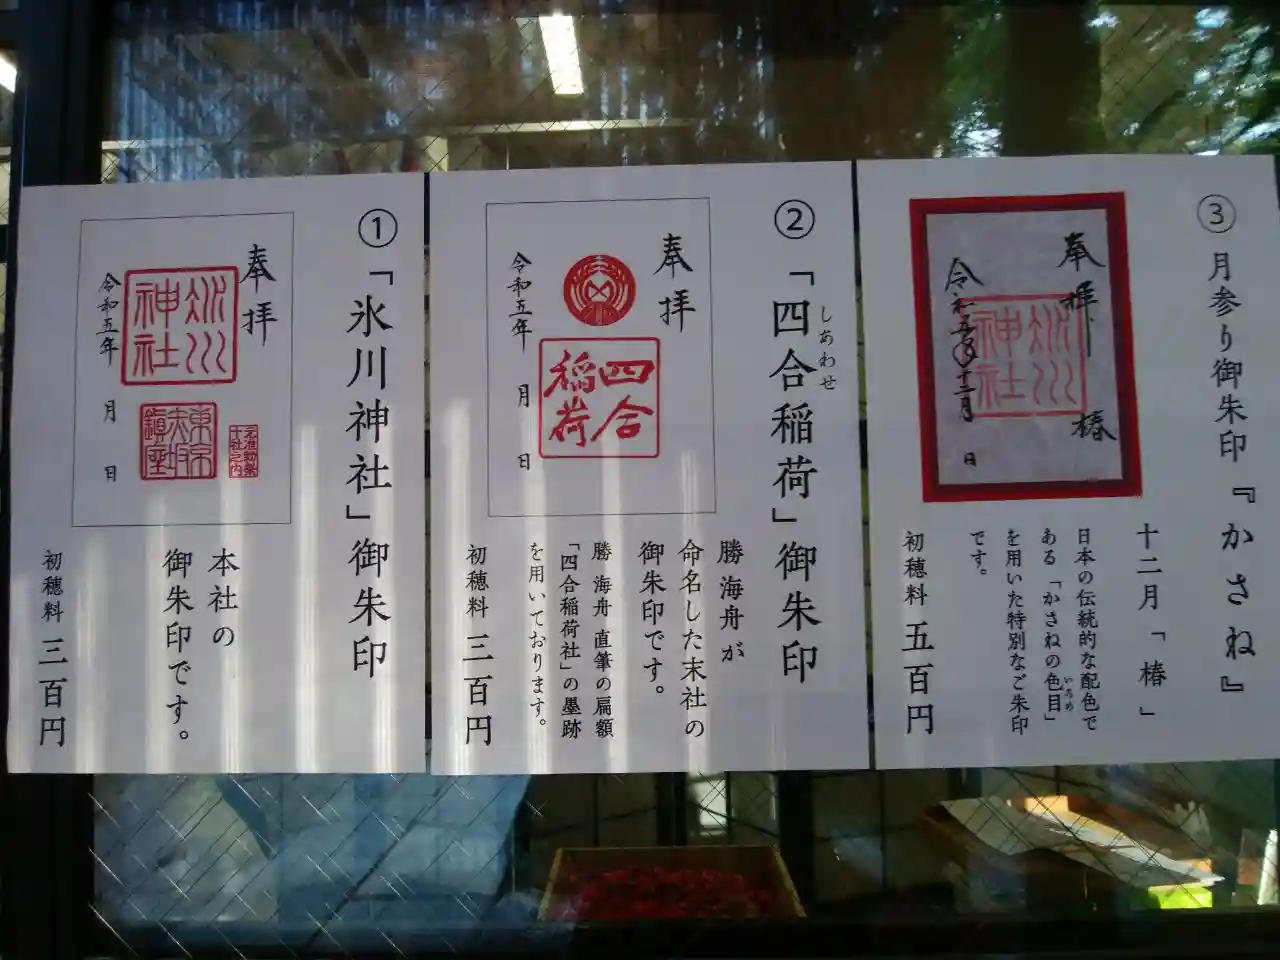 ③ 月参り御朱印『かさね』
十二月「椿」
日本の伝統的な配色で
ある「かさねの色目」
いろめ
を用いた特別なご朱印
です。
初穂料 五百円
奉拝
椿
氷川
神社
令和五年十二月 日
②「四合稲荷」御朱印
しあわせ
勝海舟が
命名した末社の
御朱印です。
勝 海舟 直筆の扁額
「四合稲荷社」の墨跡
を用いております。
初穂料 三百円
奉拝
四合
稲荷
令和五年 月 日
①「氷川神社」御朱印
本社の
御朱印です。
初穂料 三百円
奉拝
氷川
神社
東京
赤坂
鎮座
元准勅祭
十社之内
令和五年 月 日